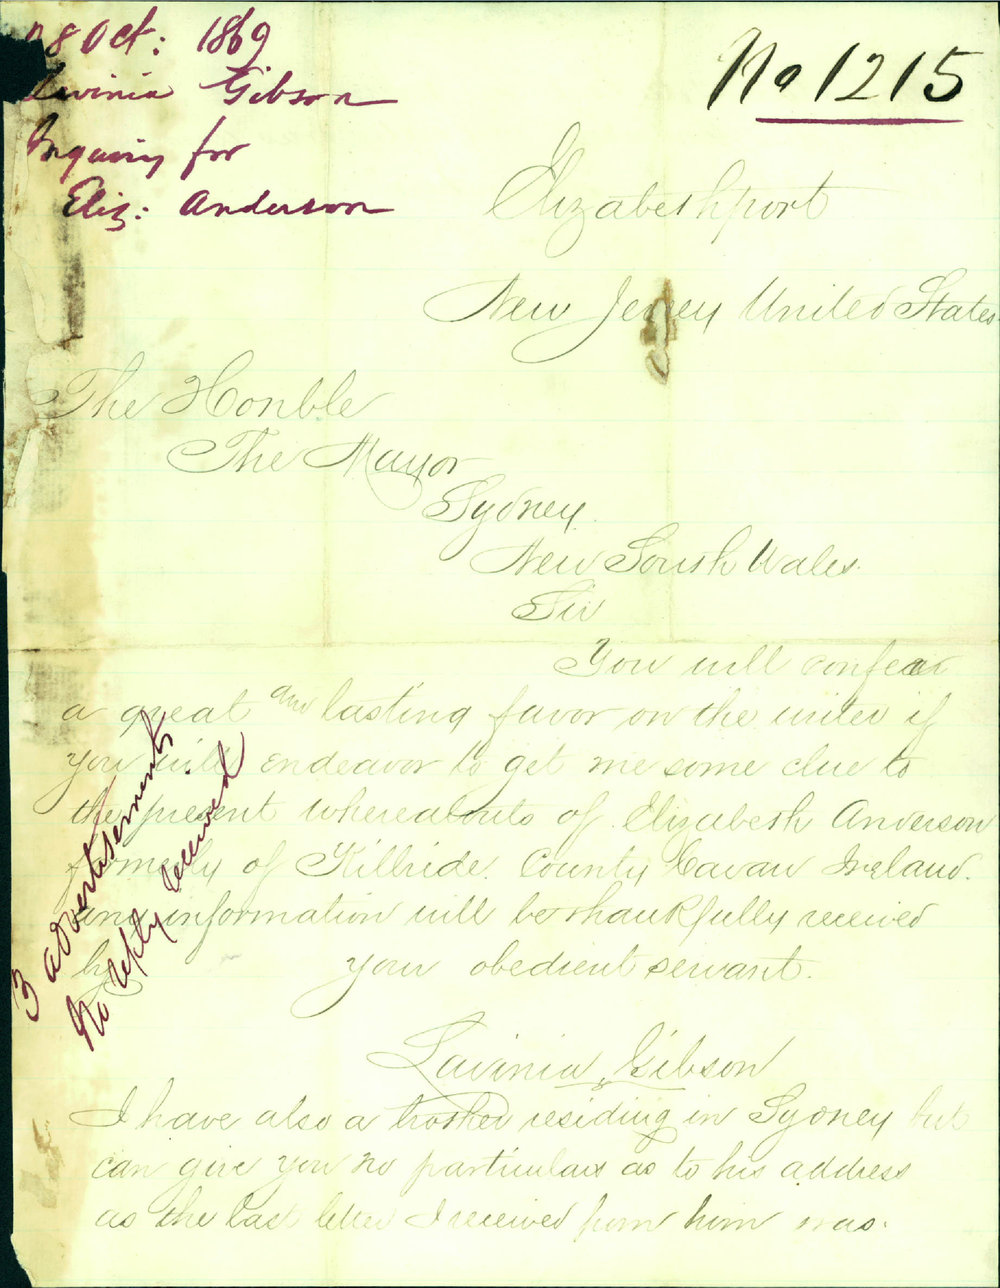 28 Oct: 1869
Lavinia Gibson
Inquiry for
Eliz: Anderson
No 1215
Elizabethport
New Jersey United States
The Honble
The Mayor
Sydney
New South Wales.
Sir
You will confear
a great and lasting favor on the writer if
you will endeavor to get me some clue to
the present whereabouts of Elizabeth Anderson
formerly of Killride. County Cavan Ireland.
any information will be thankfully received
by your obedient servant.
Lavinia Gibson
I have also a brother residing in Sydney but
can give you no particulars as to his address
as the last letter I received from him was.
3 advertisements
No reply received